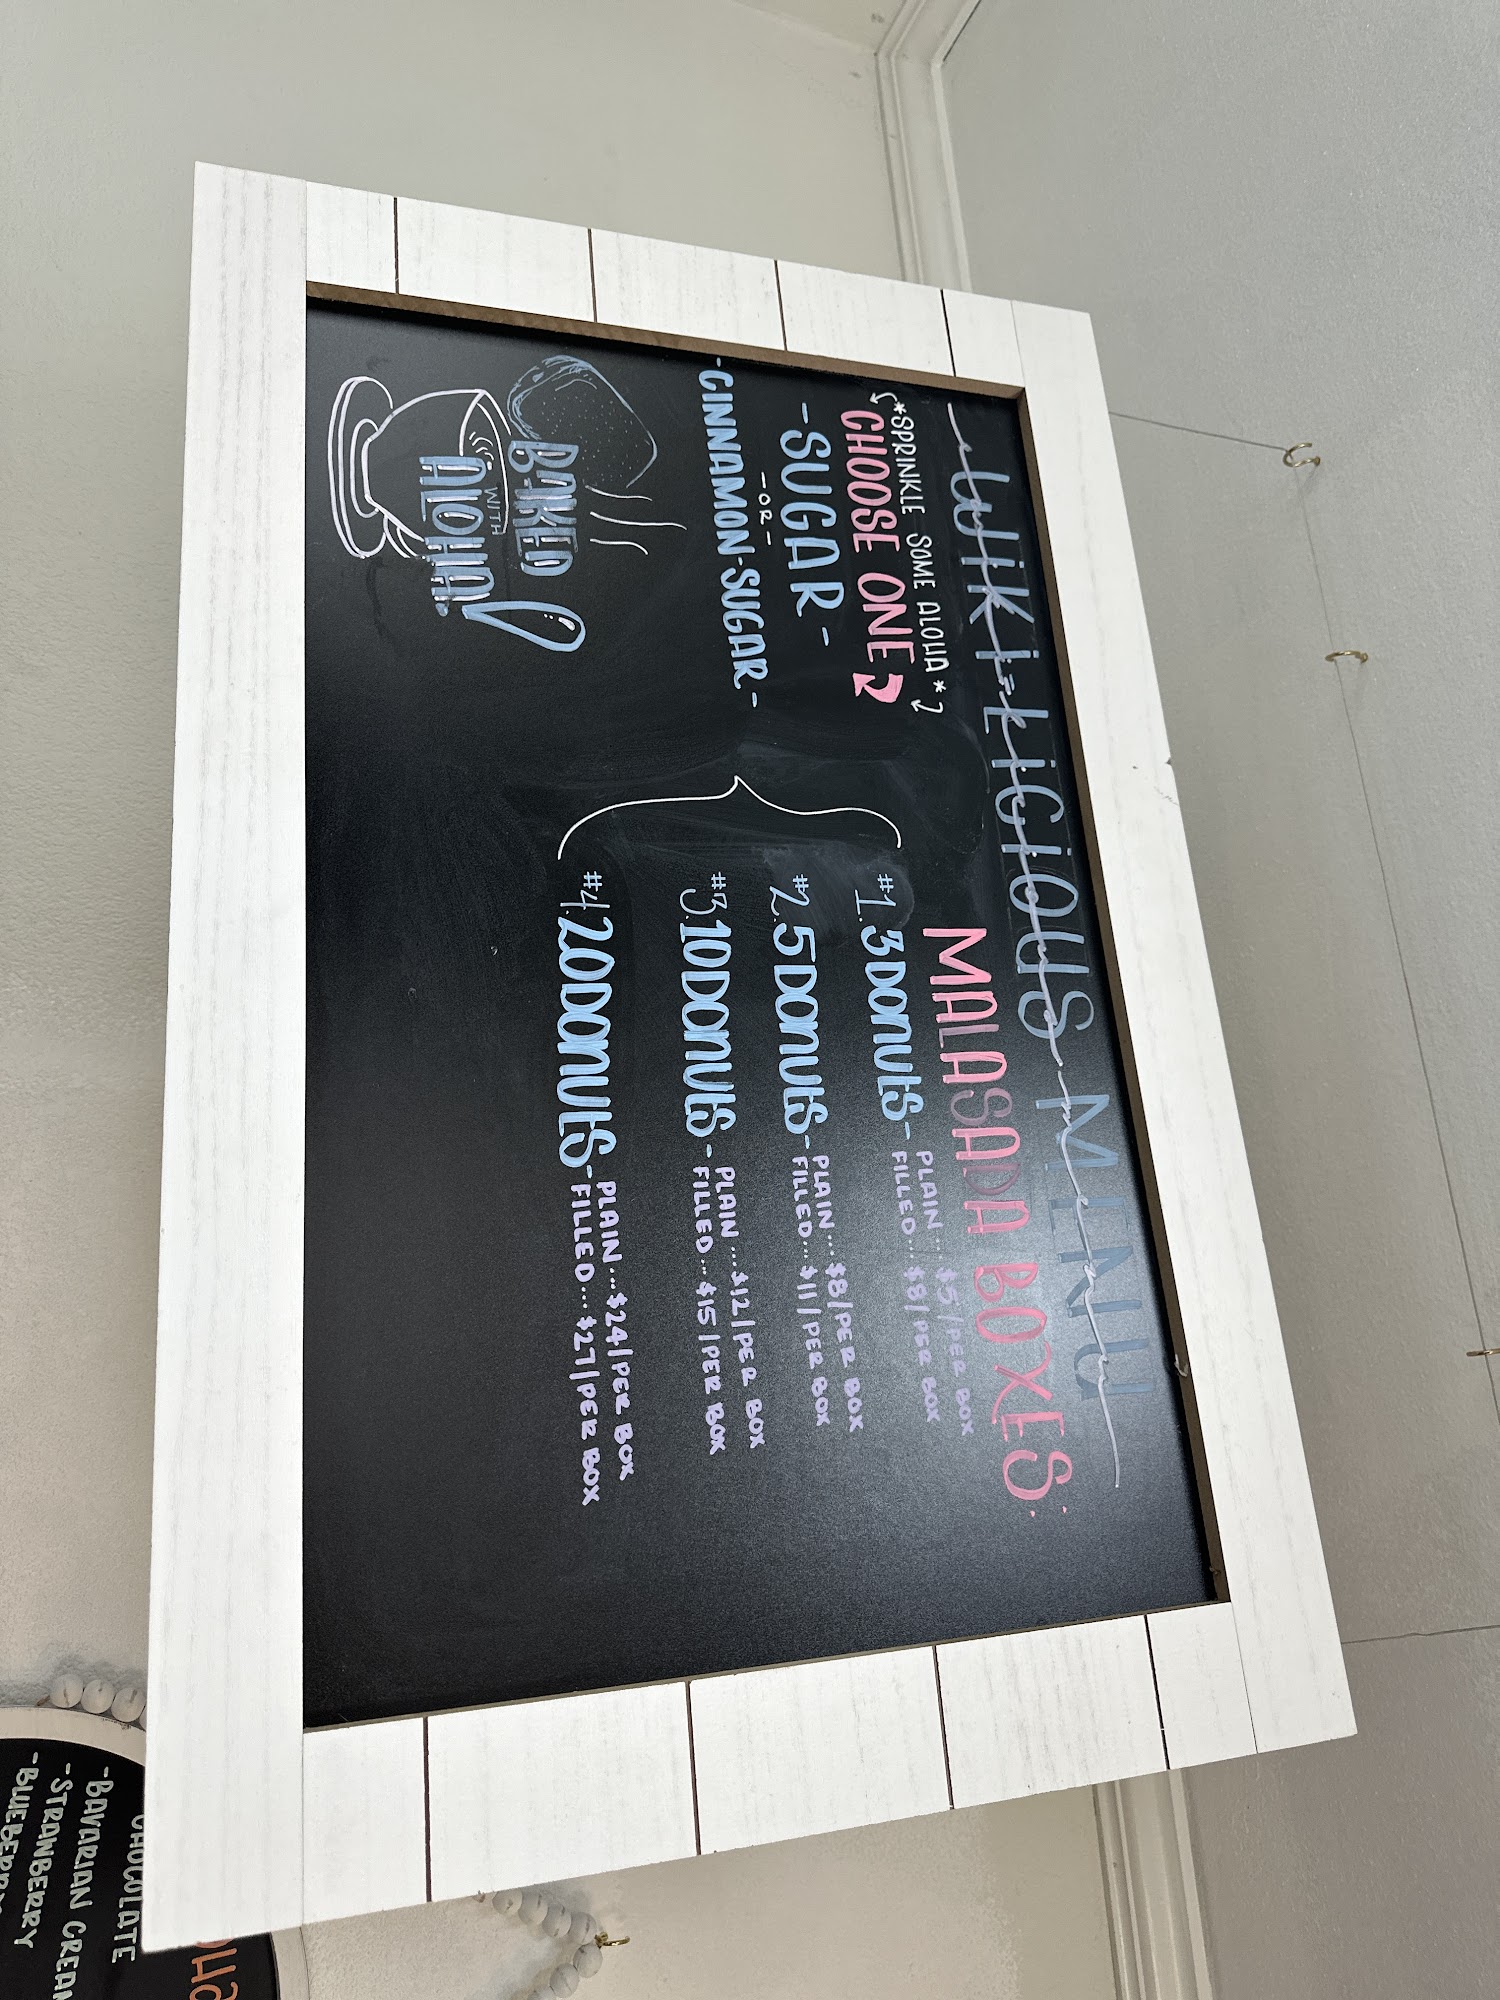 WiKi-LiCiOUS MENU
Wiki-Licious Menu
*SPRINKLE SOME ALOHA*
CHOOSE ONE
-SUGAR-
-OR-
-CINNAMON-SUGAR-
BAKED
WITH
ALOHA
MALASADA BOXES:
#1. 3 DONUTS- PLAIN... $5/PER BOX
FILLED... $8/PER BOX
#2. 5 DONUTS- PLAIN... $8/PER BOX
FILLED... $11/PER BOX
#3. 10 DONUTS- PLAIN... $12/PER BOX
FILLED... $15/PER BOX
#4. 20 DONUTS- PLAIN... $24/PER BOX
FILLED... $27/PER BOX
CHOCOLATE
-BAVARIAN CREAM
-STRAWBERRY